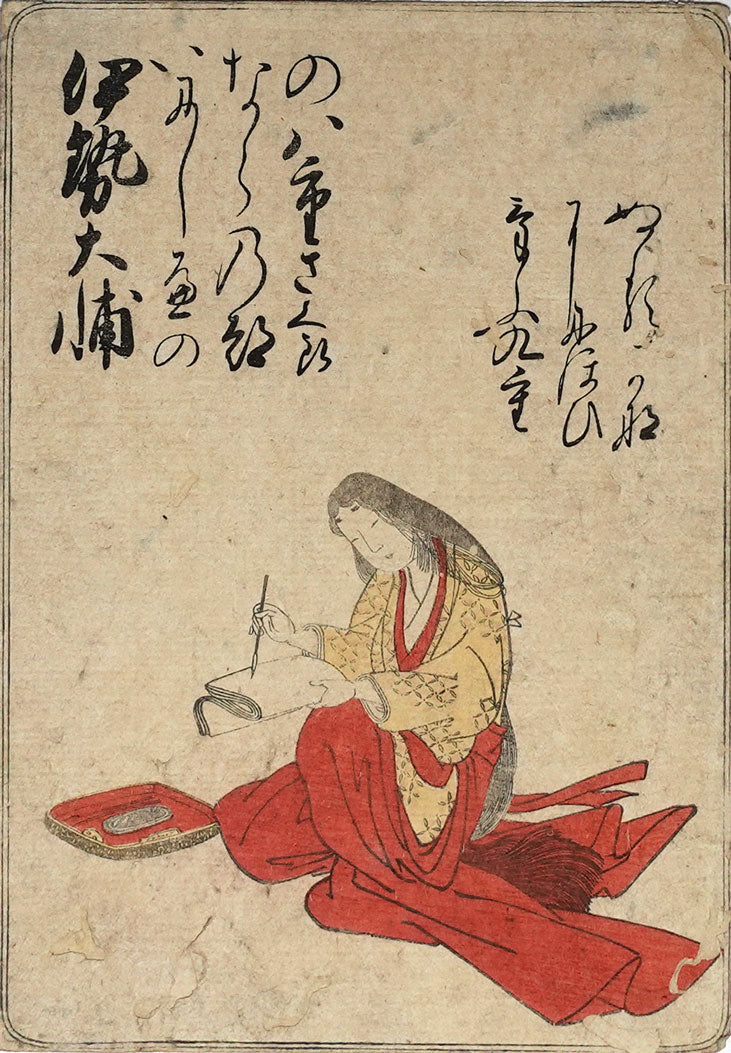 伊勢大輔
いにしへの
なら乃都
の八重さくら
けふ九重
ににほひ
ぬるかな